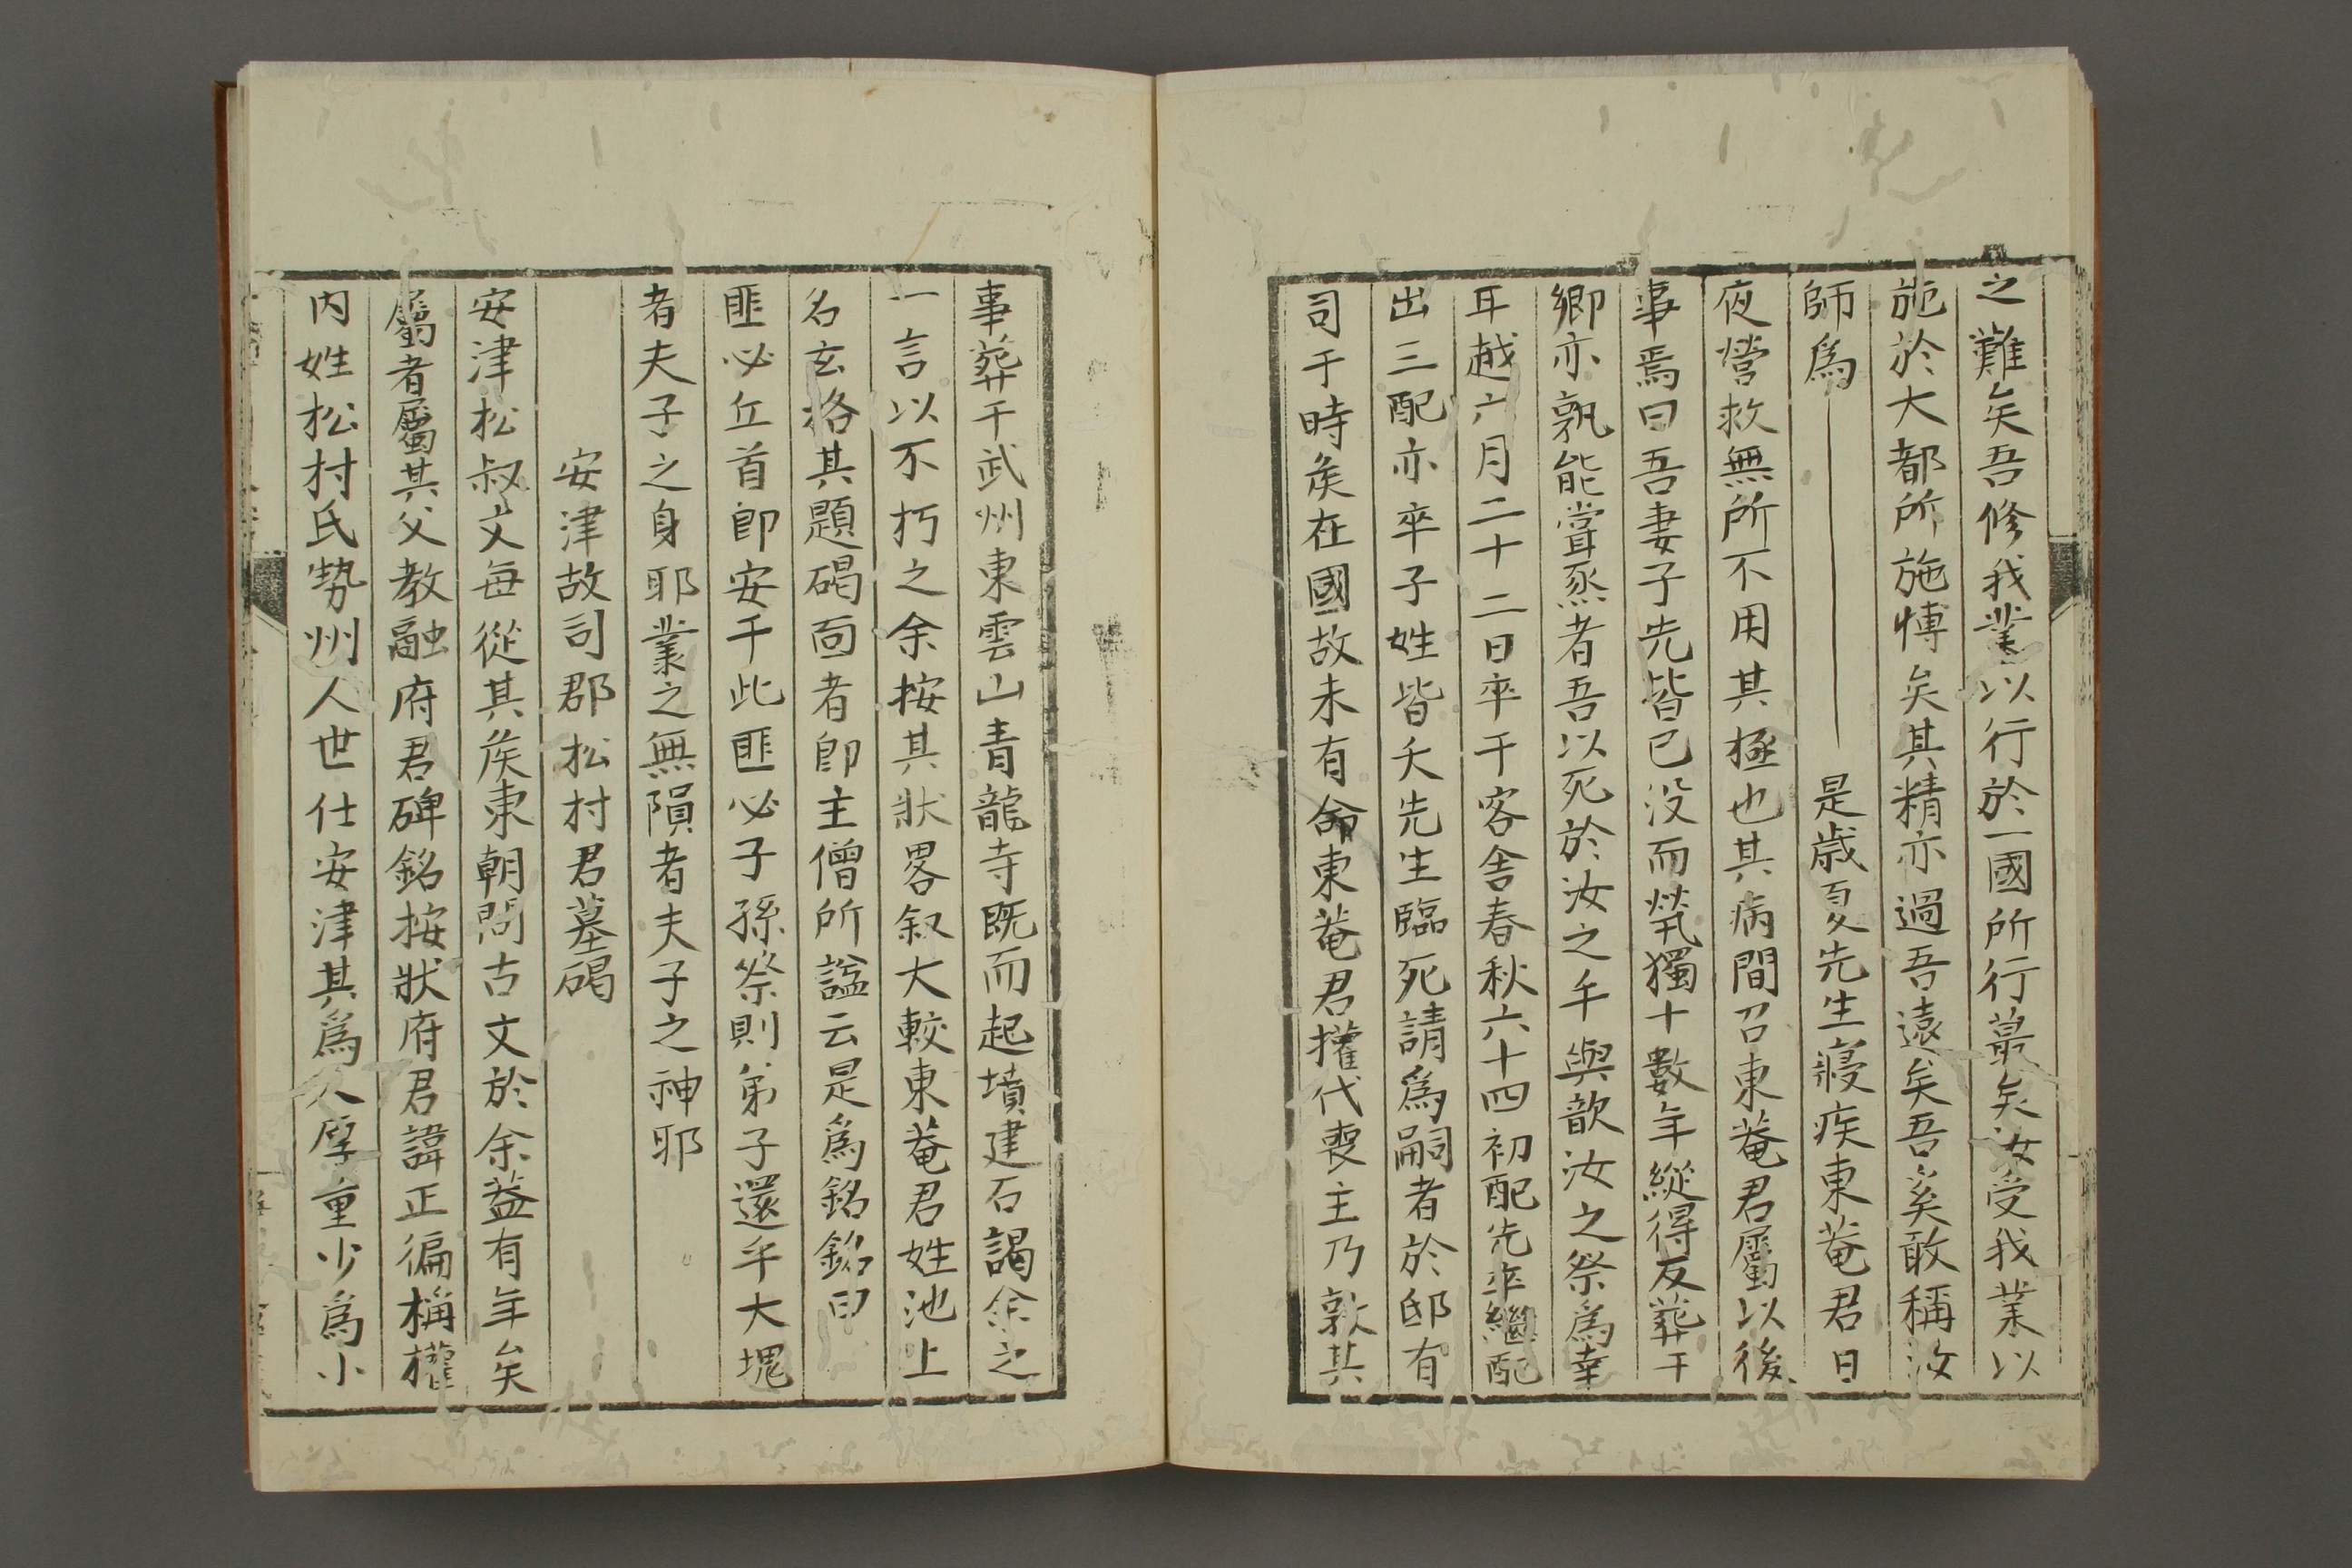 之難矣吾修我業以行於一國所行最矣汝受我業以
施於大都所施博矣其精亦過吾遠矣吾奚敢稱汝
師爲是歲夏先生寢疾東菴君日
夜營救無所不用其極也其病間召東菴君屬以後
事焉曰吾妻子先皆已没而煢獨十數年縱得反葬于
鄉亦孰能嘗烝者吾以死於汝之手與歆汝之祭爲幸
耳越六月二十二日卒于客舍春秋六十四初配先卒繼配
出三配亦卒子姓皆夭先生臨死請爲嗣者於邸有
司于時矦在國故未有命東菴君攉代喪主乃敦其
事葬于武州東雲山青龍寺既而起墳建石謁余之
一言以不朽之余按其狀畧叙大較東菴君姓池上
名玄格其題碣面者卽主僧所諡云是爲銘銘曰
匪必丘首卽安于此匪必子孫祭則弟子還乎大塊
者夫子之身耶業之無隕者夫子之神耶
安津故司郡松村君墓碣
安津松叔文每從其矦東朝問古文於余葢有年矣
屬者屬其父教融府君碑銘按狀府君諱正徧稱權
内姓松村氏勢州人世仕安津其爲人厚重少爲小